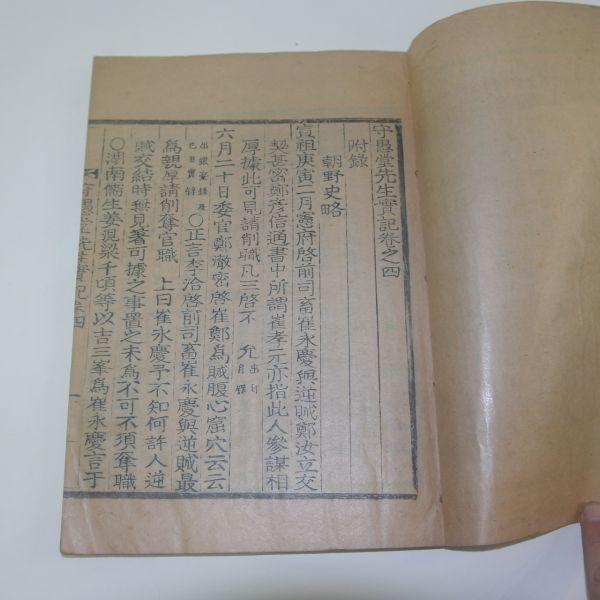 守愚堂先生實記卷之四
附錄
朝野史略
宣祖庚寅二月憲府啓前司畜崔永慶與逆賊鄭汝立交
契甚密鄭彦信通書中所謂崔孝元亦指此人參謀相
厚據此可見請削職凡三啓不 允 出日月錄
六月二十日委官鄭澈密啓崔鄭爲賊腹心窟穴云云
出銀臺錄及己丑實錄 ○正言李洽啓前司畜崔永慶與逆賊最
爲親厚請削奪官職 上曰崔永慶予不知何許人逆
賊交結時無見著可據之事置之未爲不可不須奪職
○湖南儒生姜現梁千頃等以吉三峯爲崔永慶言于
守愚堂先生實記卷四
一